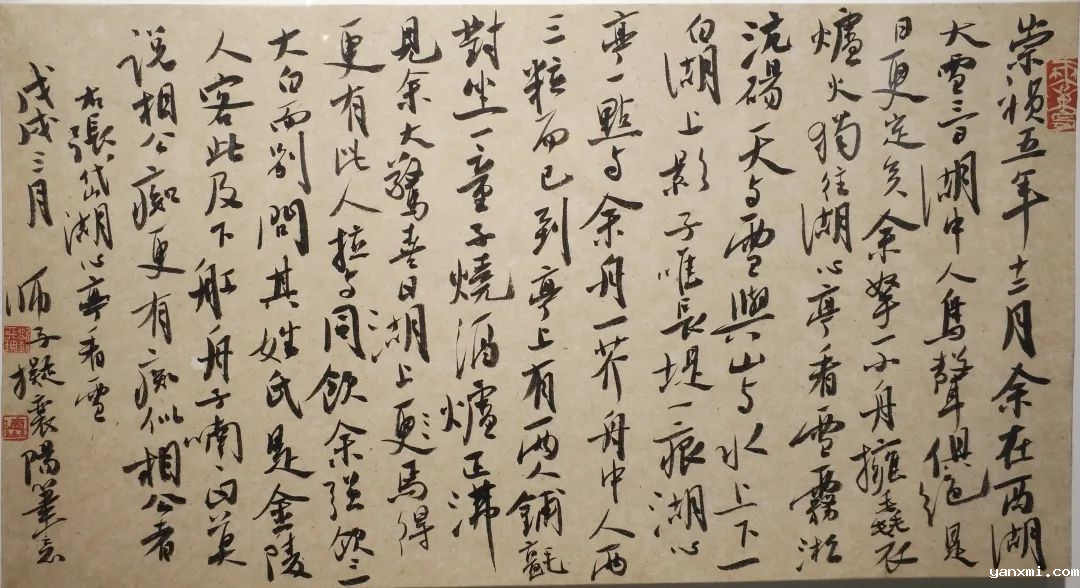 崇禎五年十二月余在西湖
大雪三日湖中人鳥聲俱絕是
日更定矣余拏一小舟擁毳衣
爐火獨往湖心亭看雪霧淞
沆碭天与雲與山与水上下一
白湖上影子唯長堤一痕湖心
亭一點与余舟一芥舟中人兩
三粒而已到亭上有兩人鋪氈
對坐一童子燒酒爐正沸
見余大驚喜曰湖上更焉得
更有此人拉与同飲余強飲三
大白而別問其姓氏是金陵
人客此及下舡舟子喃曰莫
说相公痴更有痴似相公者
右張岱湖心亭看雪
戊戌三月 子擬襄陽筆意
yanxmi.com